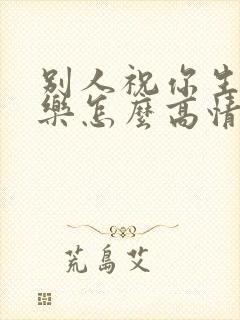 别人祝你生
樂怎麼高情
荒島艾